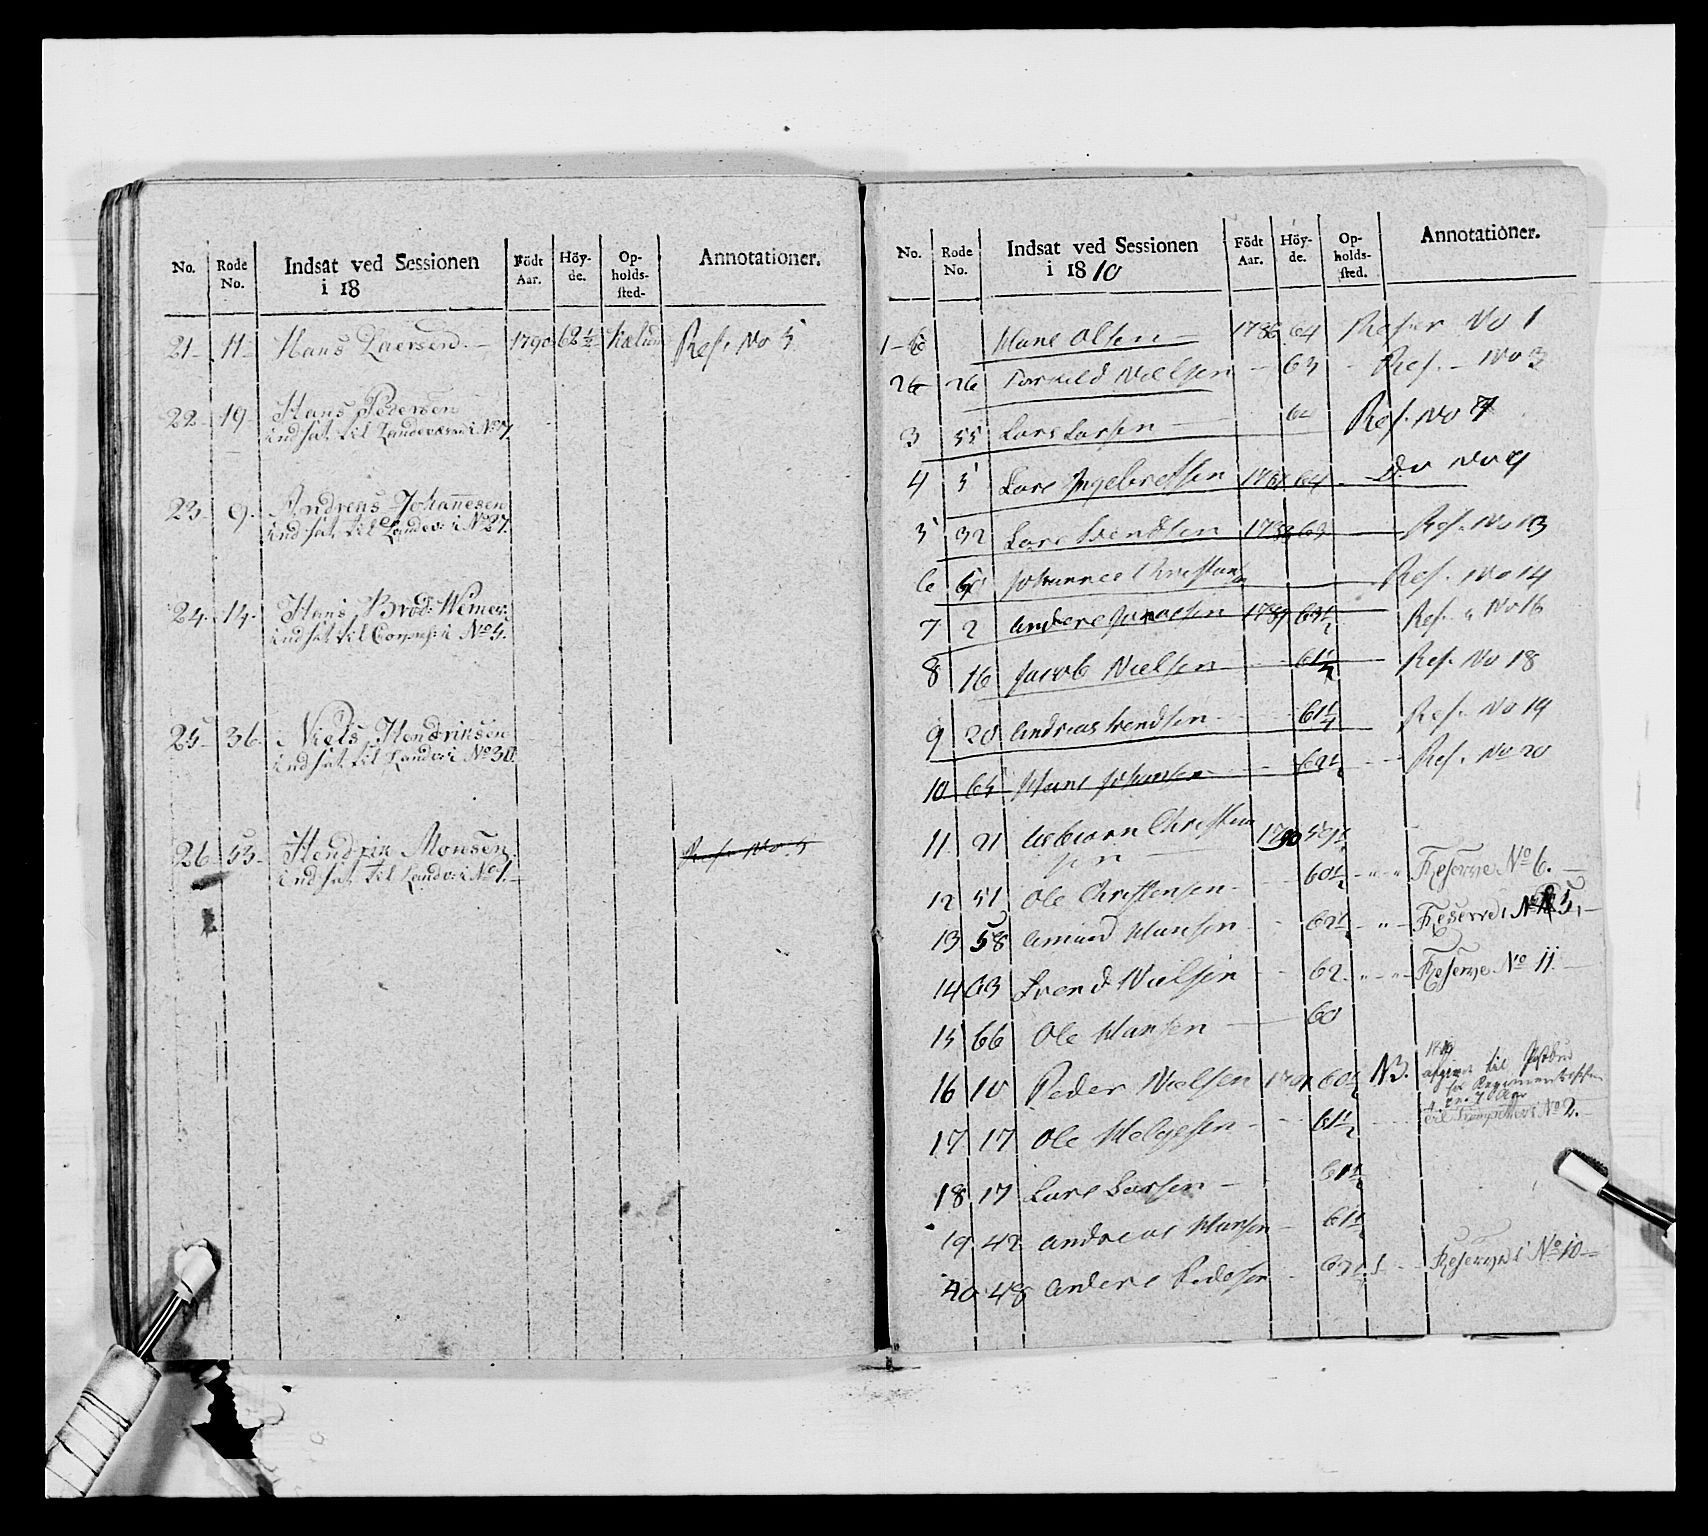 No. Rode No. Indsat ved Sessionen i 18 Födt Aar. Höy-de. Op-holds-sted- Annotationer.
21 11 Hans Laersen 1790 62 1/2 Res: No 5
22 19 Hans Pedersen
indsat til Landeværn: No 7
23 9 Andreas Johannesen
indsat til Landev: i No 27.
24 14 Hans Brod: Wimer
indsat til i No 4.
25 36 Niels Hendriksen
indsat til Landev: i No 30
26 53 Hendrik Monsen
indsat til Landv: i No 1. Res: No 5
No. Rode No. Indsat ved Sessionen i 1810 Födt Aar. Höy-de. Op-holds-sted. Annotationer.
1 6 Hans Olsen 1786 64 Reser No 1
2 26 Torkild Nielsen 63 Res. No 3
3 55 Lars Larsen 62 Res. No 7
4 5 Lars Ingebretsen 64 Do No 9
5 32 Lars Svendsen 63 Res. No 13
6 Johannes Christians Res. No 14
7 2 Anders 1789 63 1/2 Res. No 16
8 16 Jacob Nielsen 61 1/2 Res. No 18
9 20 Andreas Svendsen 61 1/4 Res. No 19
10 65 Hans Johansen 62 1/2 Res. No 20
11 21 Asbiorn Christen
sen 1790 59 1/2
12 51 Ole Christensen 60 1/2 Reserve No 6.
13 58 Amund Hansen 62 1/2 Reserve No 5.
14 63 Svend Nielsen 62 Reserve No 11.
15 66 Ole Hansen 60
16 10 Peder Nielsen 1791 60 1/2 NB. afgiven til
17 17 Ole Helgesen 61 1/2 til No 2.
18 17 Lars Larsen 61 1/2
19 42 Andreas Hansen 61 1/2
20 48 Anders Pedersen Reserve i No 10